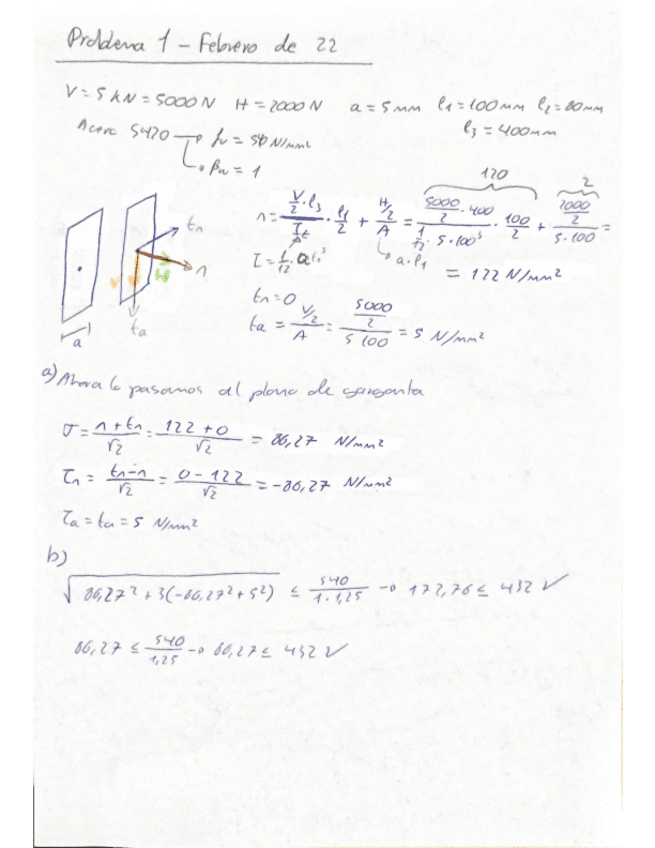 Problema 1 - Febrero de 22
V = 5 kN = 5000 N H = 2000 N a = 5 mm l1 = 100 mm l2 = 80 mm
l3 = 400 mm
Acero S420 → fu = 540 N/mm²
→ βw = 1
120 2
n = (V/2 · l3)/It · l1/2 + (H/2)/A = (5000/2 · 400)/(1/12 · 5 · 100³) · 100/2 + (2000/2)/(5 · 100) =
I = 1/12 · a l1³ → a · l1 = 122 N/mm²
tn = 0
ta = (V/2)/A = (5000/2)/(5 100) = 5 N/mm²
tn
V H n
ta
a
a) Ahora lo pasamos al plano de garganta
σ = (n + tn)/√2 = (122 + 0)/√2 = 86,27 N/mm²
τn = (tn - n)/√2 = (0 - 122)/√2 = -86,27 N/mm²
τa = ta = 5 N/mm²
b)
√(86,27² + 3(-86,27² + 5²)) ≤ 540/(1 · 1,25) → 172,76 ≤ 432 ✓
86,27 ≤ 540/1,25 → 86,27 ≤ 432 ✓